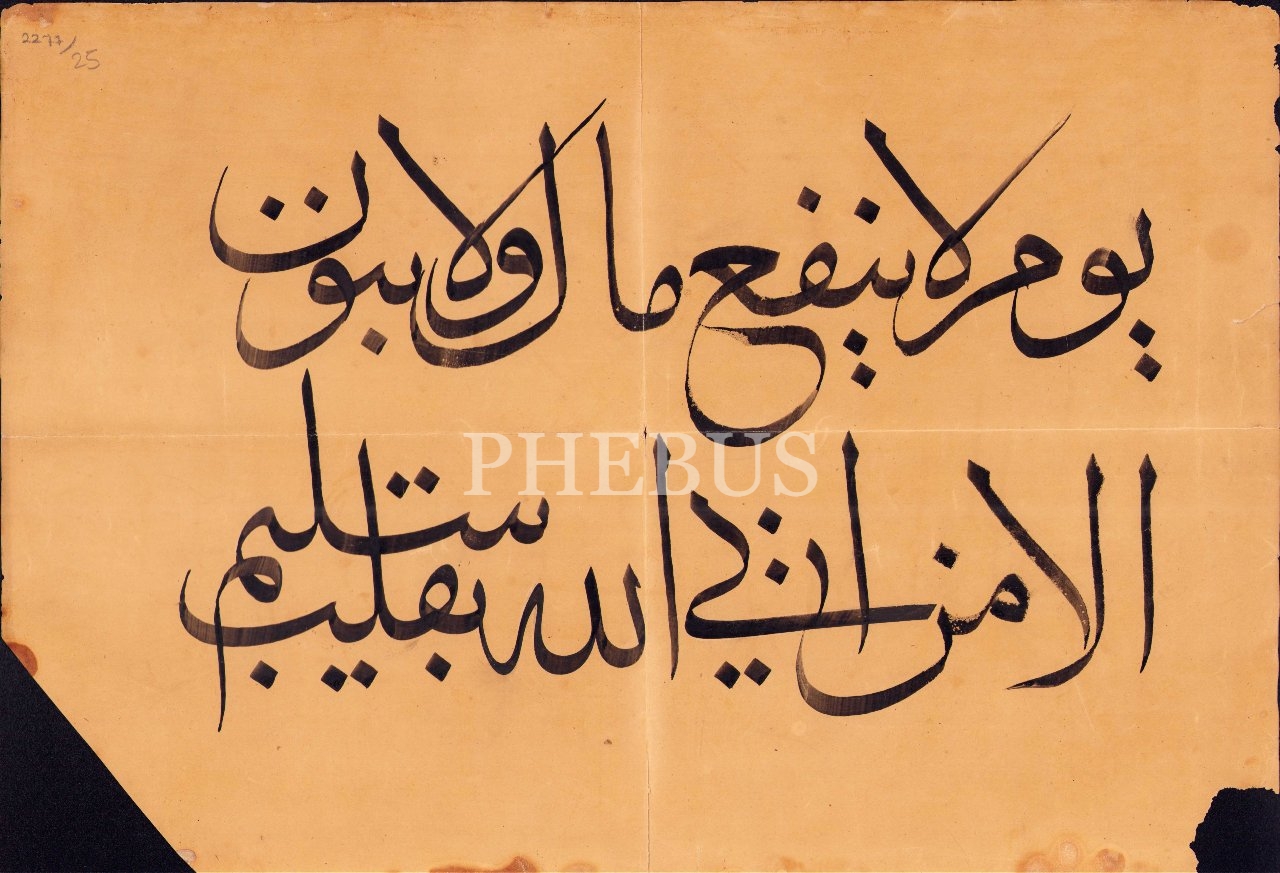 2277/25
يوم لا ينفع مال ولا بنون
الا من اتى الله بقلب سليم
PHEBUS